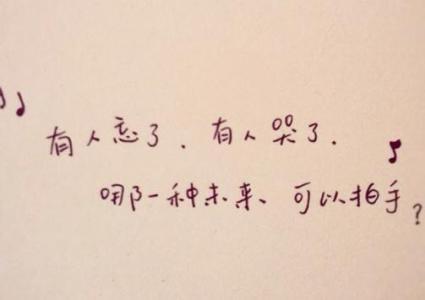 有人忘了. 有人哭了.
哪一种未来、可以拍手?